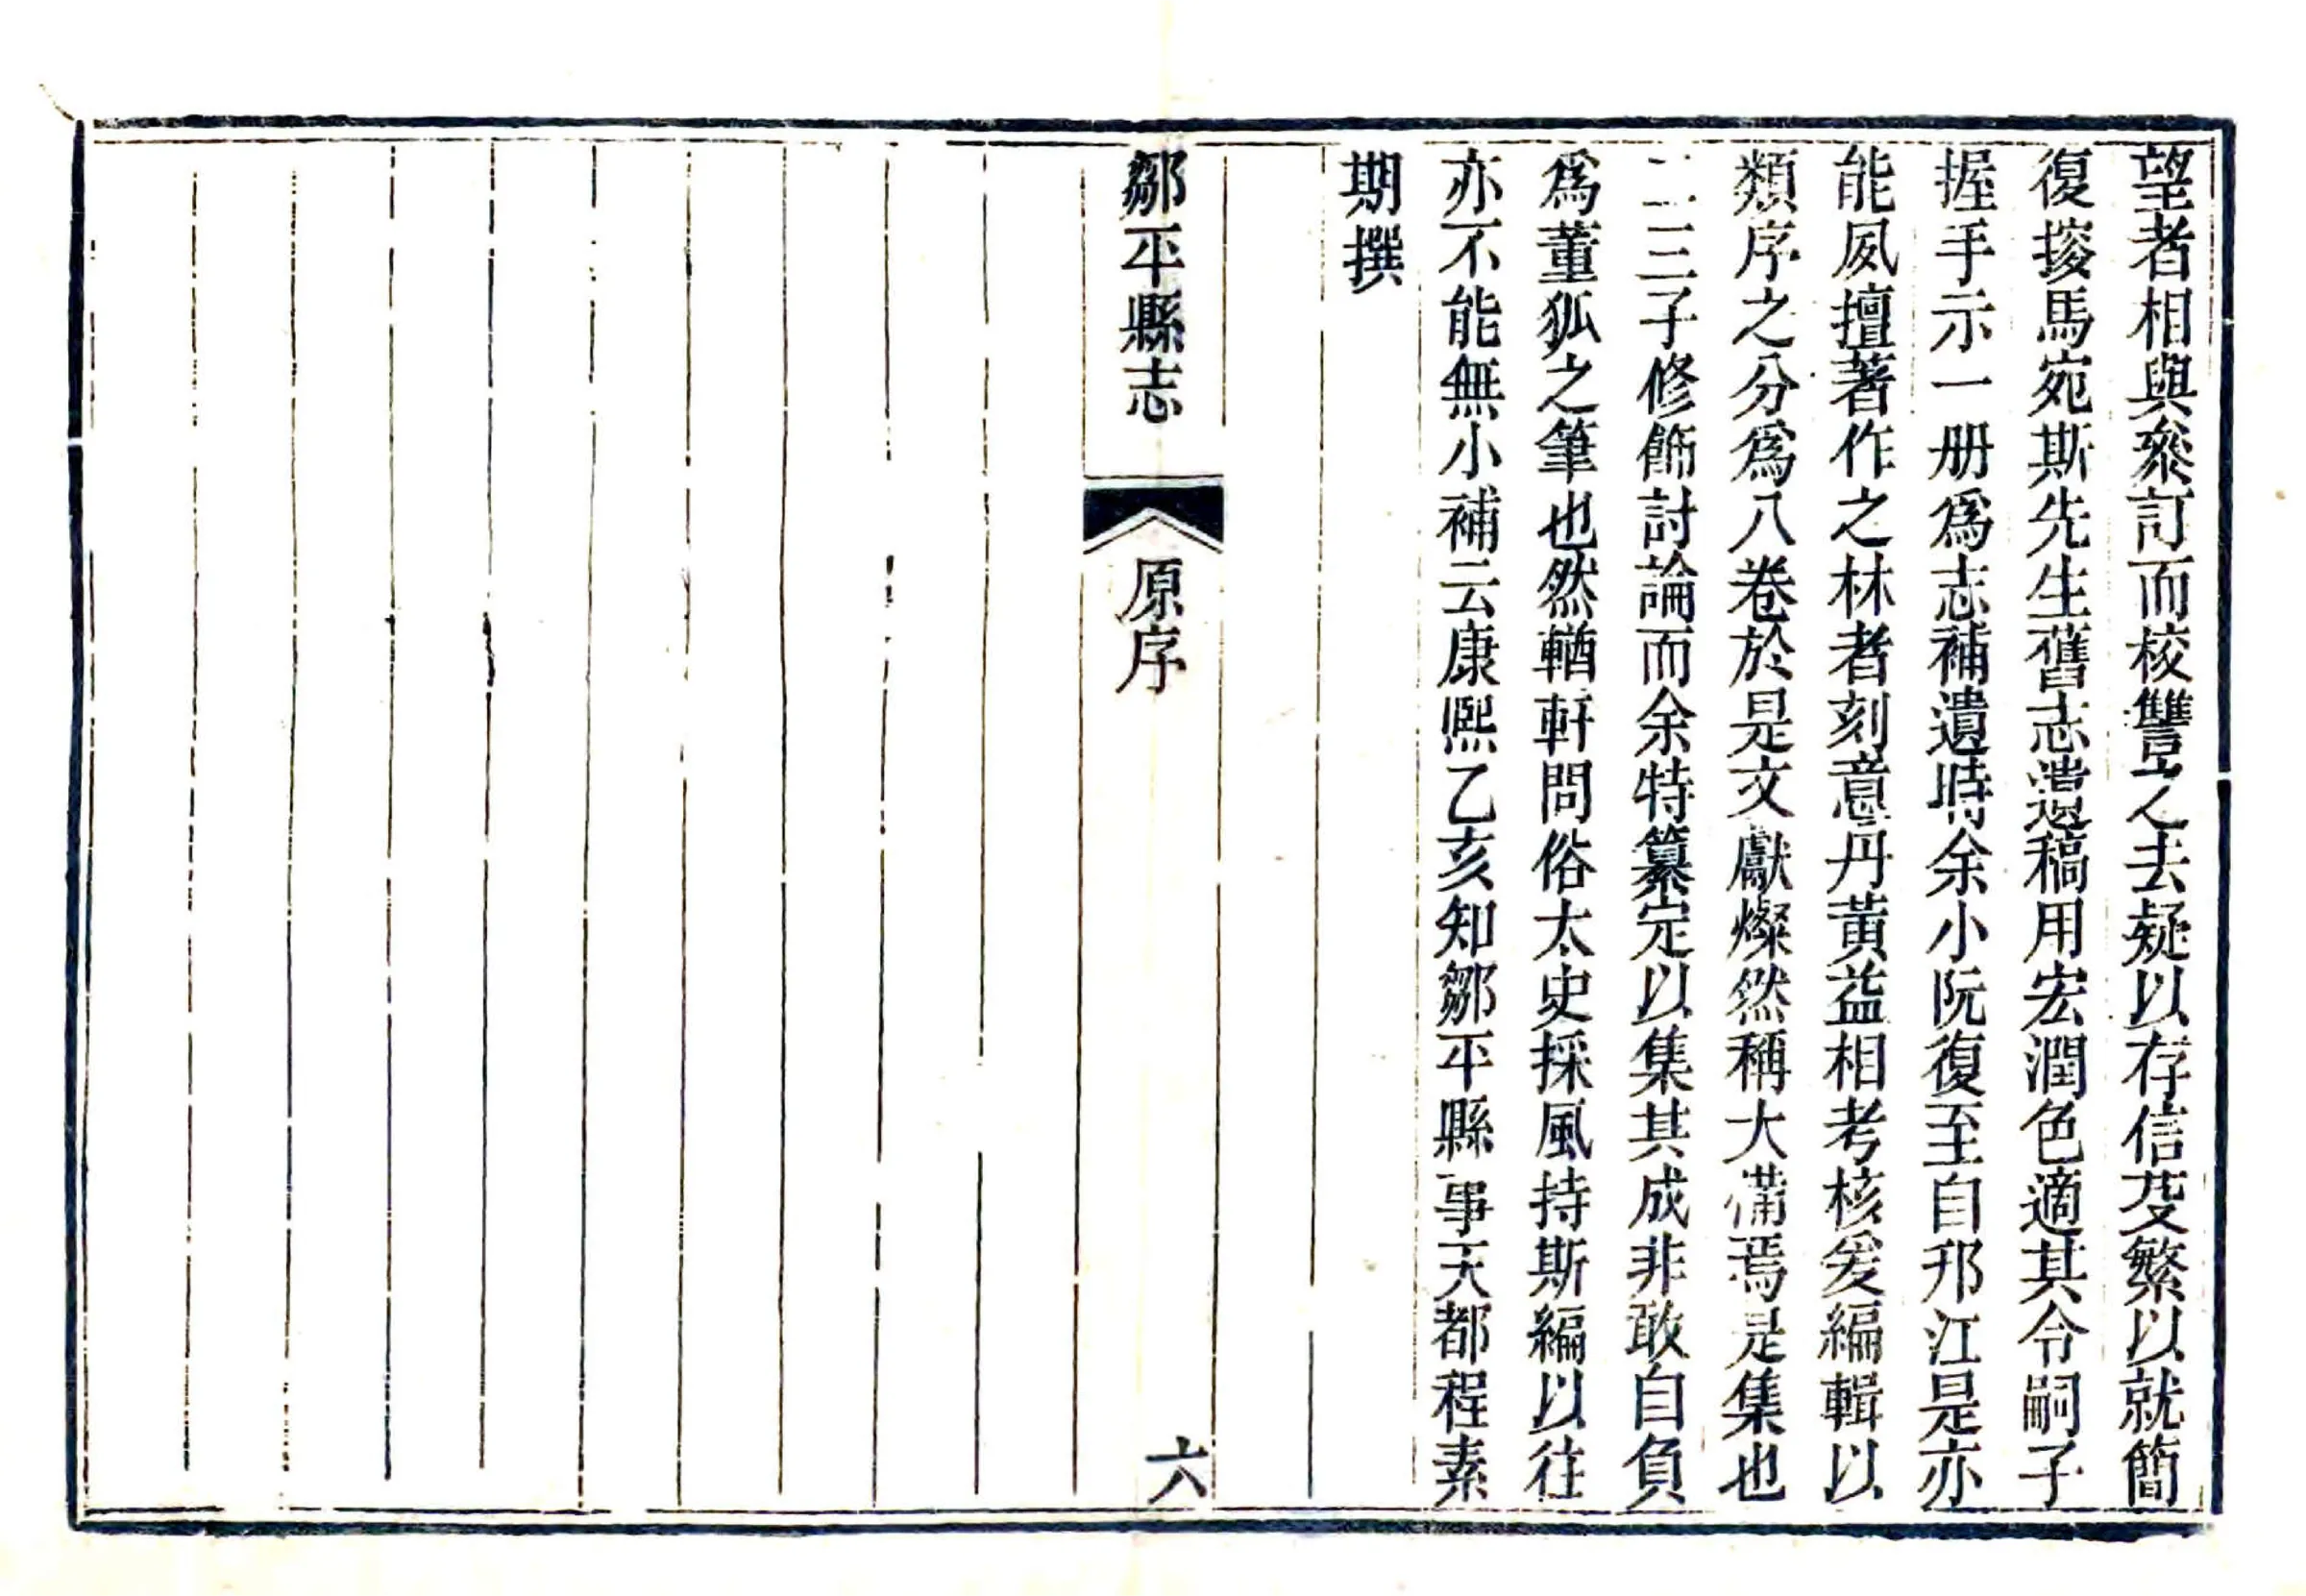 望者相與叅訂而校讐之去疑以存信芟繁以就簡
復搜馬宛斯先生舊志遺稿用宏潤色適其令嗣子
握手示一册爲志補遺時余小阮復至自邗江是亦
能夙擅著作之林者刻意丹黃益相考核爰編輯以
類序之分爲八卷於是文獻燦然稱大備焉是集也
二三子修餙討論而余特纂定以集其成非敢自負
爲董狐之筆也然輶軒問俗太史採風持斯編以往
亦不能無小補云康熙乙亥知鄒平縣事天都程素
期撰
鄒平縣志
原序
六